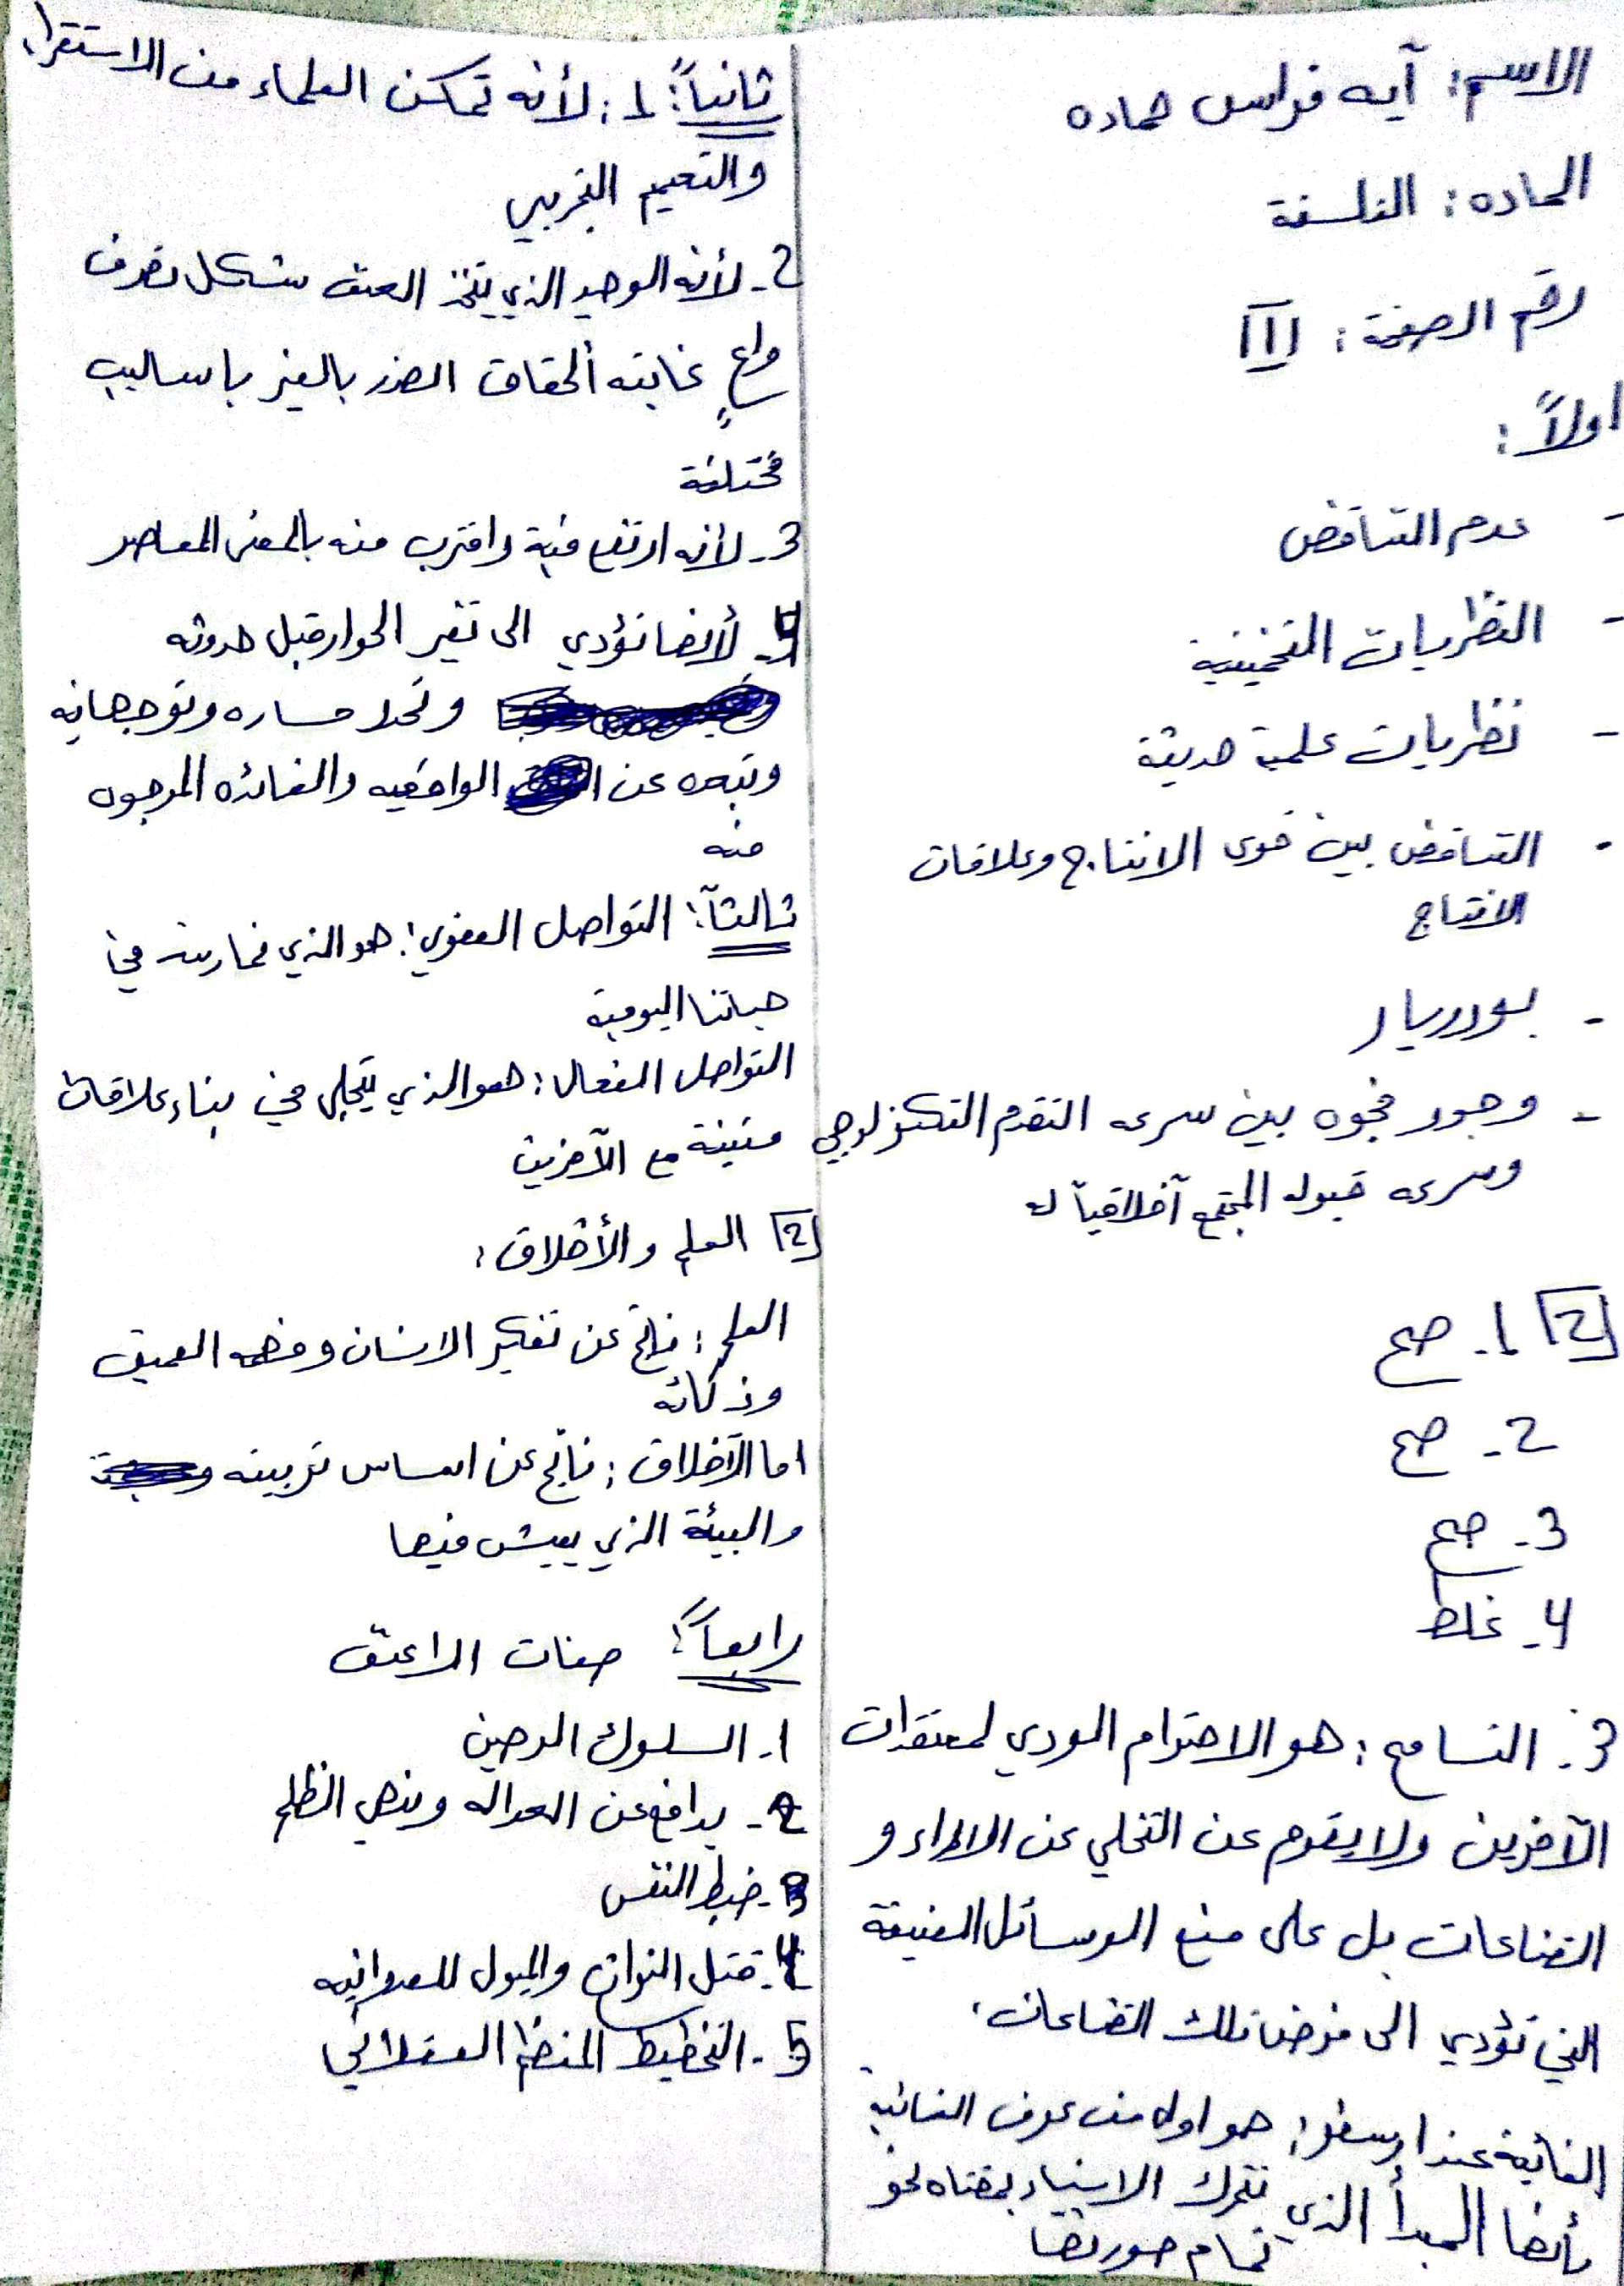 الاسم: آيه فراس حماده
الماده: الفلسفة
رقم الصفحة:
اولاً:
- عدم التناقض
- النظريات التخمينية
- نظريات علمية حديثة
- التناقض بين قوى الانتاج وعلاقات
الانتاج
- بودريار
- وجود فجوه بين سرعه التقدم التكنولوجي
وسرعه قبول المجتمع أخلاقياً له
2 1. صح
2- صح
3- صح
4- غلط
3- التسامح: هو الاحترام الودي لمعتقدات
الآخرين ولا يقوم عن التخلي عن الاراء و
القناعات بل على منع الوسائل العنيفة
التي تؤدي الى فرض تلك القناعات.
الغائية عند ارسطو: هو اول من عرف الغائية
بأنها المبدأ الذي تتحرك الاشياء بمقتضاه نحو
تمام صورتها
ثانياً: 1: لأنه تمكن العلماء من الاستقراء
والتعميم التجريبي
2- لأنه الوحيد الذي يتخذ العنف بشكل تصرف
واعٍ غايته ألحقاق الضرر بالغير باساليب
مختلفة
3- لأنه ارتفع فيه واقترب منه بالمعنى المعاصر
4- لأنها تؤدي الى تغير الحوار قبل حدوثه
وتحد مساره وتوجهاته
وتبعده عن الواقعيه والفائده المرجوه
منه
ثالثاً: التواصل العفوي: هو الذي نمارسه في
حياتنا اليومية
التواصل الفعال: هو الذي يتجلى في بناء علاقات
متينة مع الآخرين
2 العلم والأخلاق:
العلم: ناتج عن تفكير الانسان وفهمه العميق
وذكائه
اما الأخلاق: ناتج عن اساس تربيته
والبيئة الذي يعيش فيها
رابعاً: صفات الاعنف
1- السلوك الرصين
2- يدافع عن العداله وينهي الظلم
3- ضبط النفس
4- قتل النوازع والميول للعدوانيه
5- التخطيط المنظم العقلاني